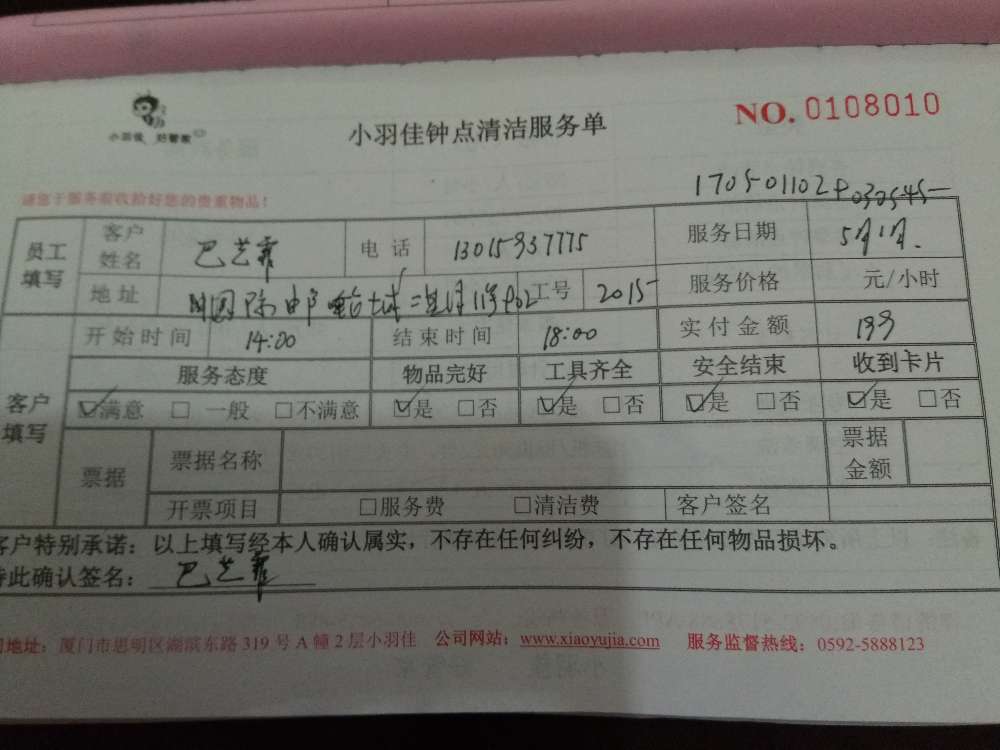 小羽佳 好管家
小羽佳钟点清洁服务单
NO. 0108010
请您于服务前收拾好您的贵重物品！
170501102P032545
员工填写 客户姓名 巴艺霏 电话 13015937775 服务日期 5月1日.
地址 国际 二期 11号 802 工号 2015 服务价格 元/小时
客户填写 开始时间 14:00 结束时间 18:00 实付金额
服务态度 物品完好 工具齐全 安全结束 收到卡片
☑满意 □一般 □不满意 ☑是 □否 ☑是 □否 ☑是 □否 ☑是 □否
票据 票据名称 票据金额
开票项目 □服务费 □清洁费 客户签名
客户特别承诺：以上填写经本人确认属实，不存在任何纠纷，不存在任何物品损坏。
特此确认签名：巴艺霏
司地址：厦门市思明区湖滨东路 319 号 A 幢 2 层小羽佳 公司网站：www.xiaoyujia.com 服务监督热线：0592-5888123